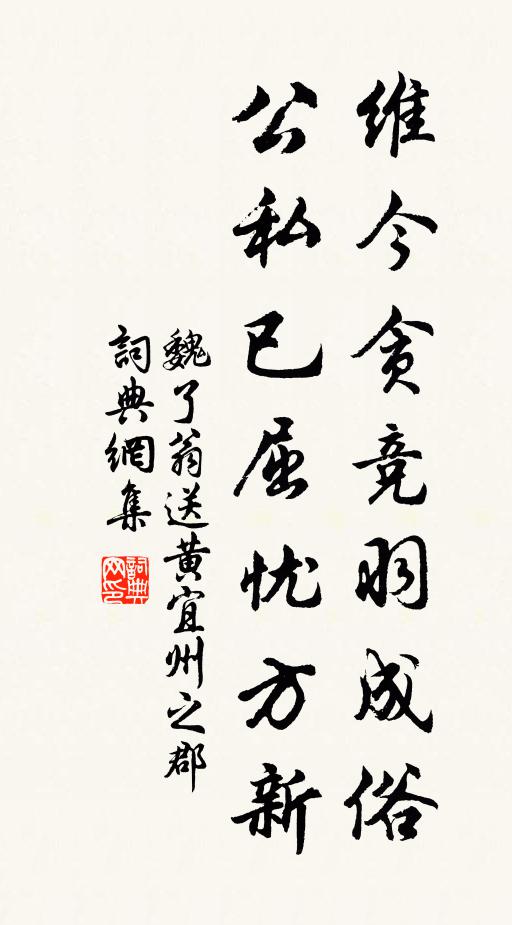 維今貪竞羽成俗
公私已屈忧方新
魏了翁送黄宜州之郡
詞典網集
詞典网印